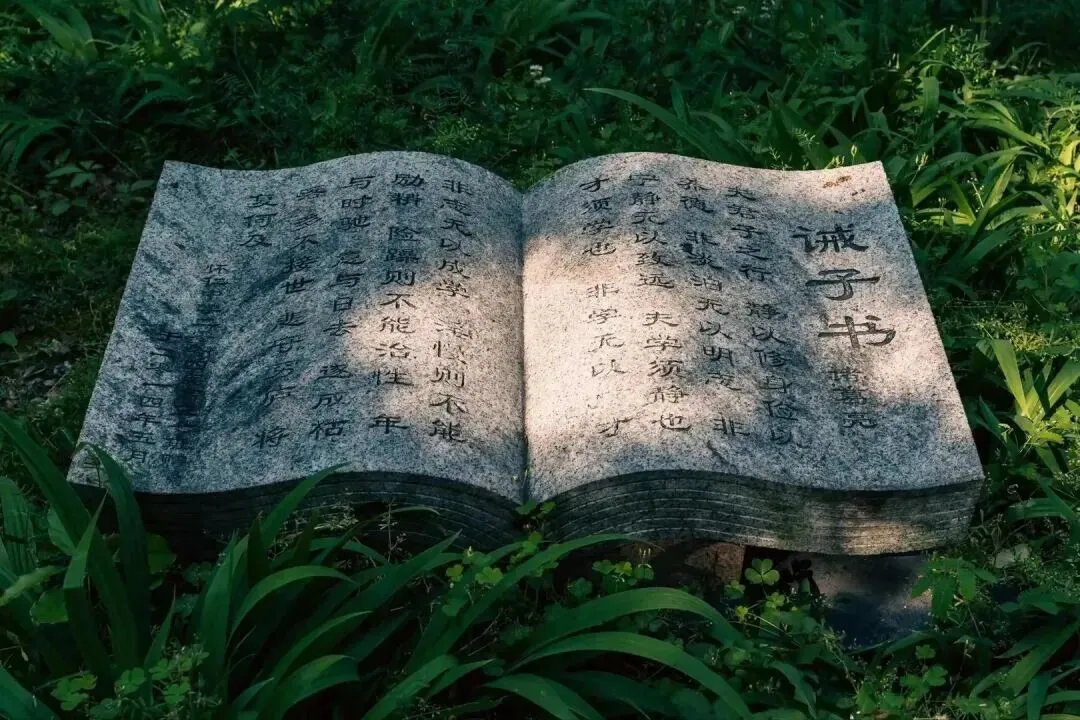 诫子书
诸葛亮
夫君子之行 静以修身俭以
养德 非泊无以明志 非
宁静无以致远 夫学须静也
才须学也 非学无以 才
非志无以成学 慢则不能
励精 险躁则不能治性 年
与时驰 意与日去 遂成枯
落 多不接世 悲守穷庐 将
复何及
一四年五月